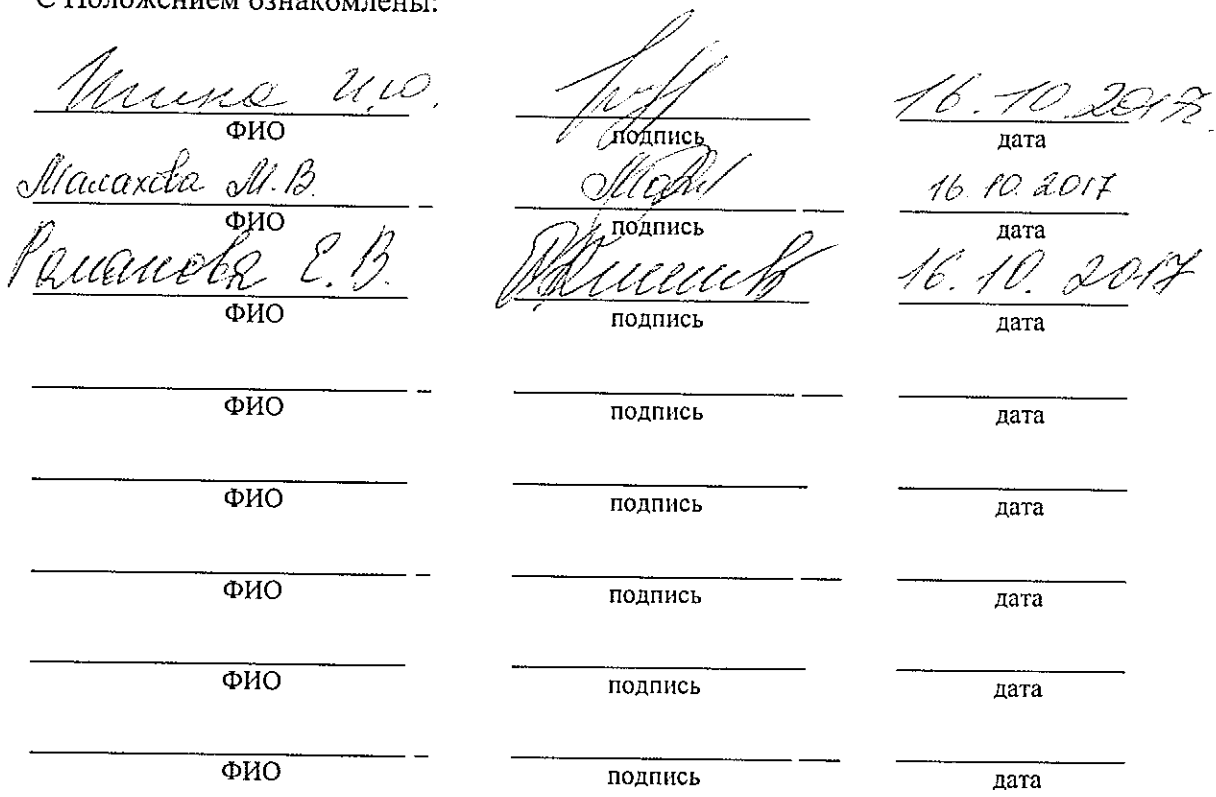 С Положением ознакомлены:
И.Ю. 16.10.2017г.
ФИО подпись дата
Малахова М.В. 16.10.2017
ФИО подпись дата
Романова Е.В. 16.10.2017
ФИО подпись дата
ФИО подпись дата
ФИО подпись дата
ФИО подпись дата
ФИО подпись дата
ФИО подпись дата